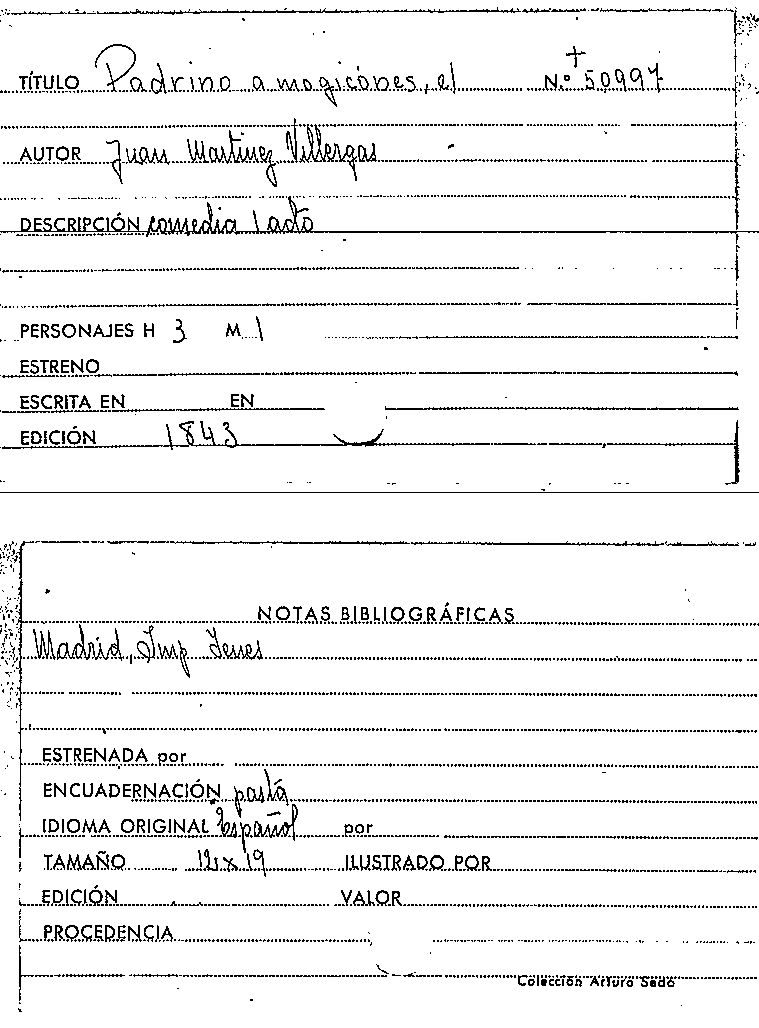 TÍTULO Padrino a mogicones, el N.º + 50997
AUTOR Juan Martinez Villergas
DESCRIPCIÓN comedia 1 acto
PERSONAJES H 3 M 1
ESTRENO
ESCRITA EN EN
EDICIÓN 1843
NOTAS BIBLIOGRÁFICAS
Madrid, Imp Yenes
ESTRENADA por
ENCUADERNACIÓN pasta
IDIOMA ORIGINAL Español por
TAMAÑO 12 x 19 ILUSTRADO POR
EDICIÓN VALOR
PROCEDENCIA
Colección Arturo Sedó